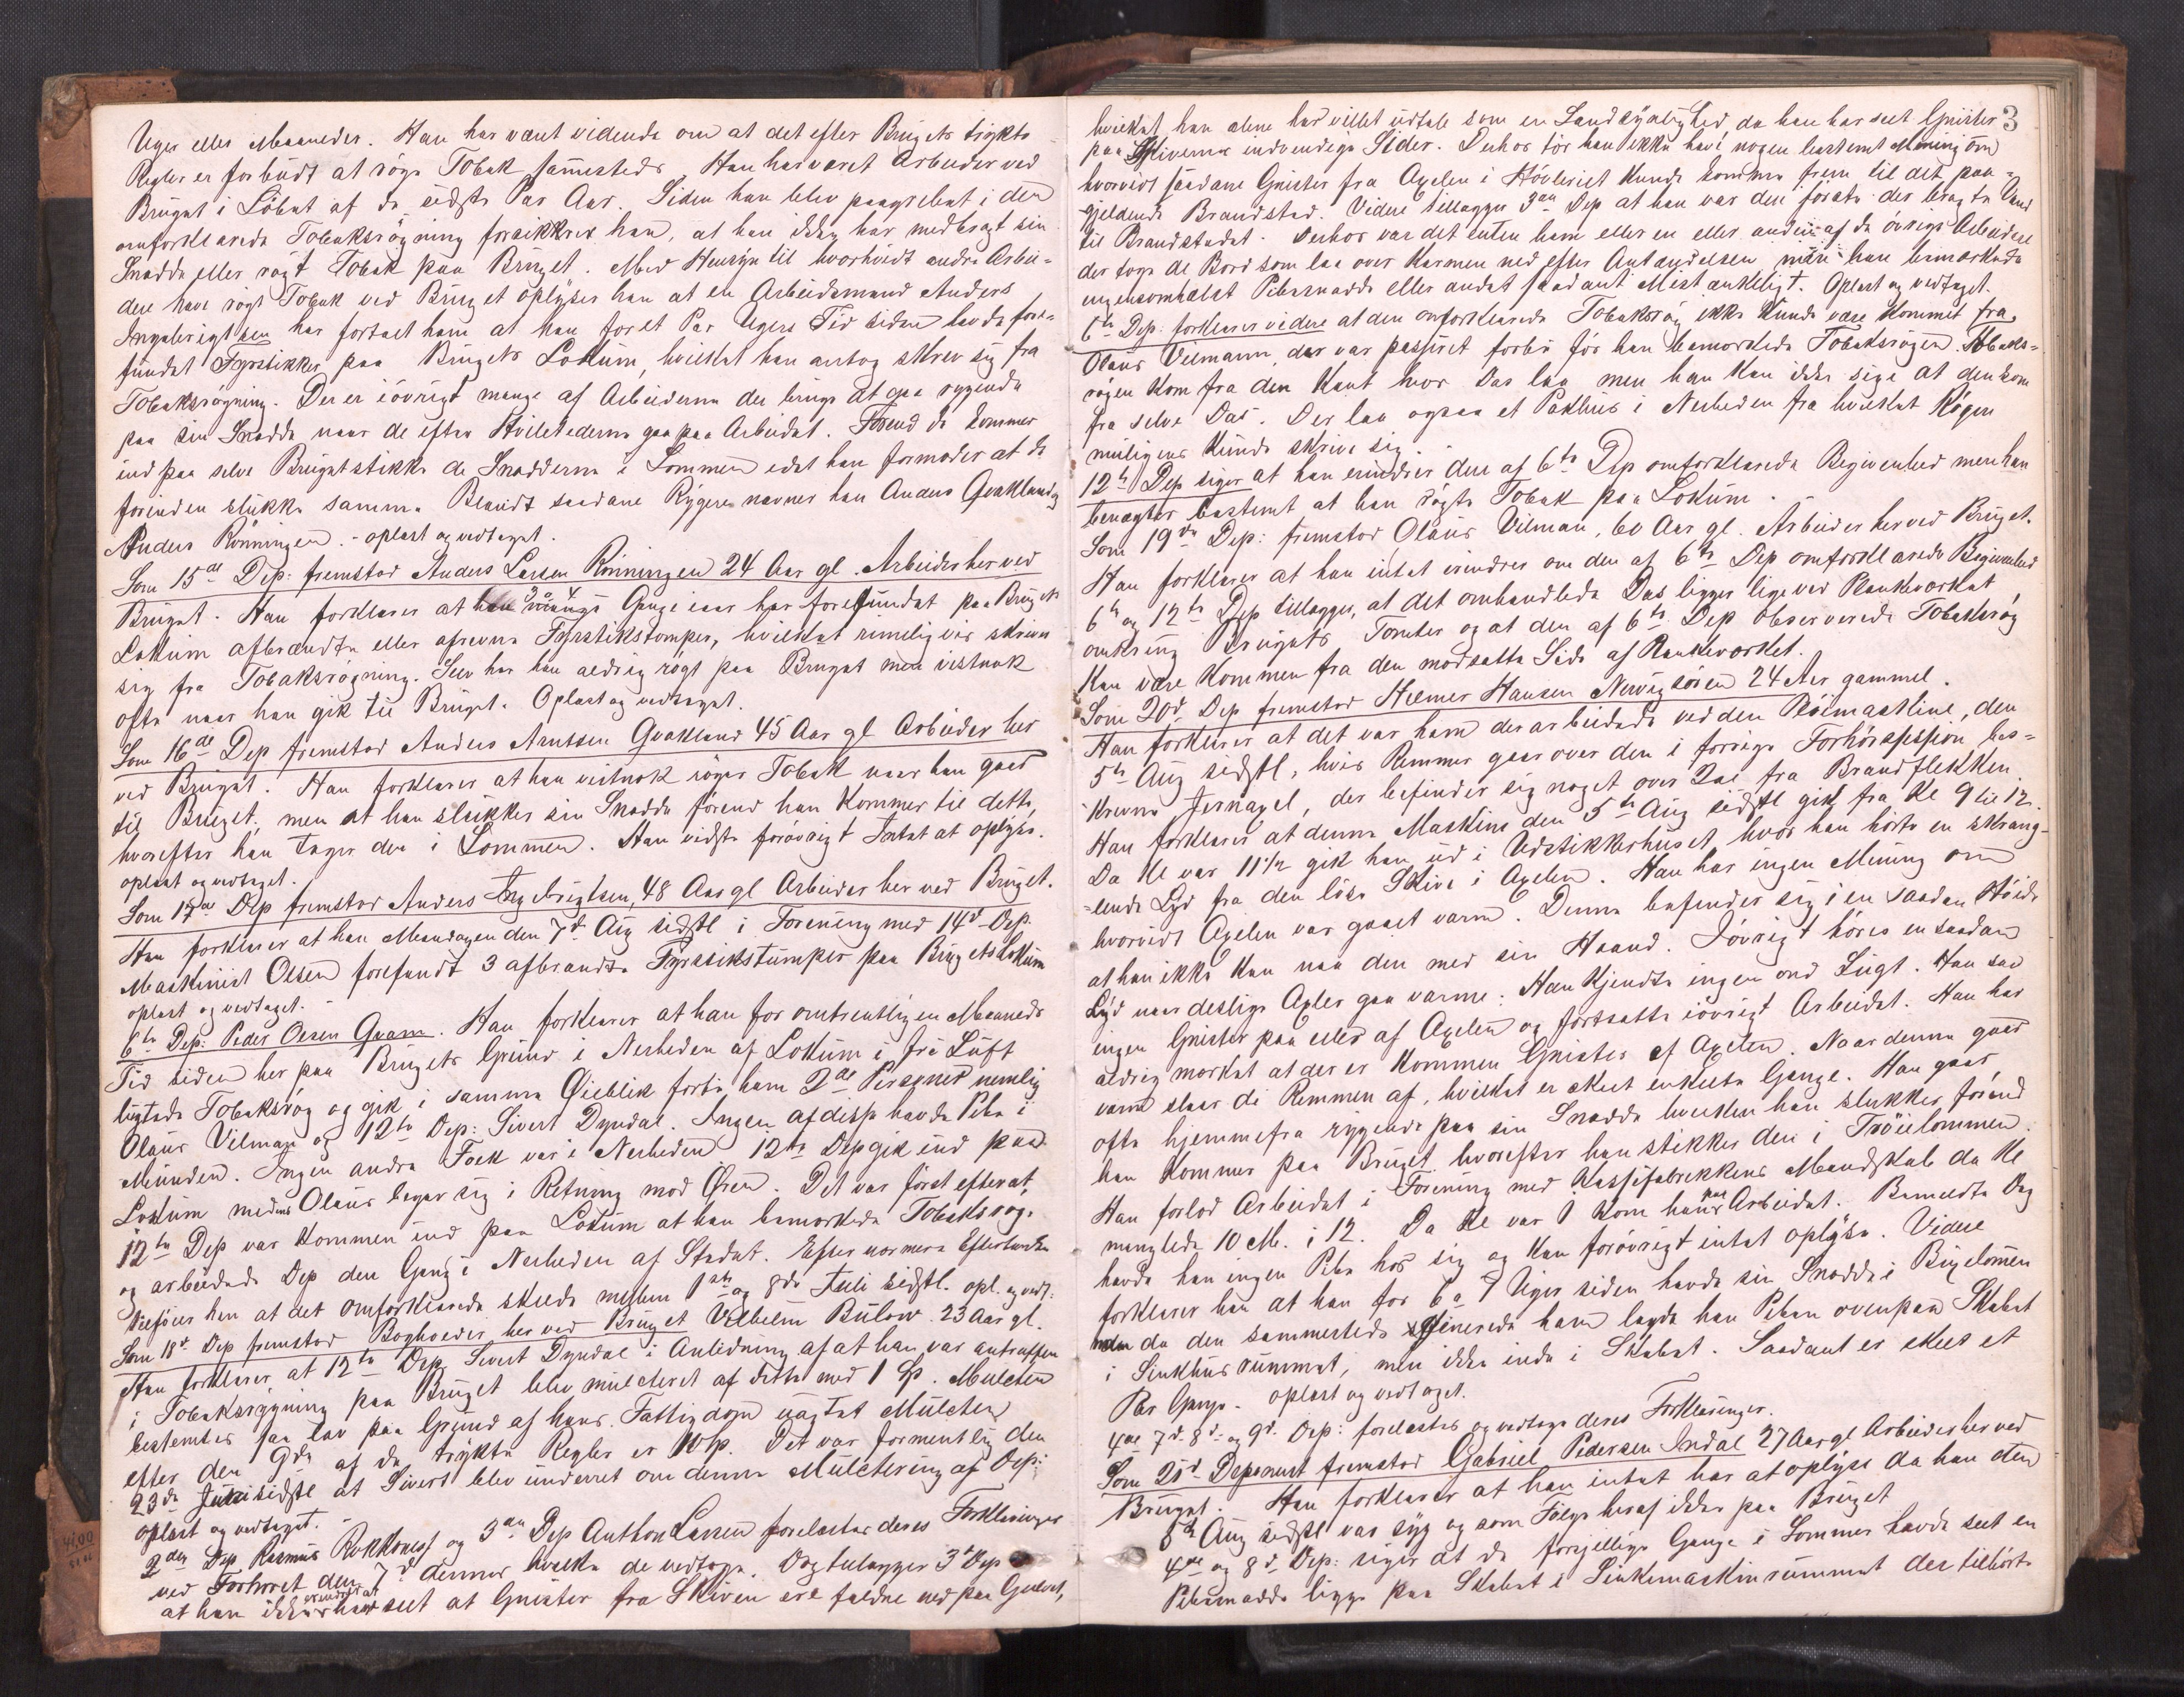 Uger eller Maaneder. Han har været vidende om at det efter Brugets trykte
Regler er forbudt at røge Tobak sammesteds. Han har været Arbeider ved
Bruget i Løbet af de sidste Par Aar. Siden han blev paagrebet i den
omforklarede Tobaksrøgning forsikkrer han, at han ikke har medbragt sin
Snadde eller røgt Tobak paa Bruget. Med Hensyn til hvorvidt andre Arbei-
dere have røgt Tobak ved Bruget oplyser han at en Arbeidsmand Anders
Ingebrigtsen har fortalt ham at han for et Par Ugers Tid siden havde fore-
fundet Fyrstikker paa Brugets Lokum, hvilket han antog skrev sig fra
Tobaksrøgning. Der er iøvrigt mange af Arbeiderne der bruge at gaa rygende
paa sin Snadde naar de efter Hviletiderne gaa paa Arbeidet. Førend de kommer
ind paa selve Bruget stikke de Snadderne i Lommen idet han formoder at de
forinden slukke samme. Blandt saadane Rygere nævner han Anders Gvakland og
Anders Rönningen. - oplæst og vedtaget.
Som 15de Dep: fremstod Anders Larsen Rönningen 24 Aar gl. Arbeider her ved
Bruget. Han forklarer at han 3 a 4 Gange iaar har forefundet paa Brugets
Lokum afbrændte eller afrevne Fyrstikstomper, hvilket rimeligvis skriver
sig fra Tobaksrøgning. Selv har han aldrig røgt paa Bruget men vistnok
ofte naar han gik til Bruget. Oplæst og vedtaget.
Som 16de Dep fremstod Anders Arntsen Gvakland 45 Aar gl Arbeider her
ved Bruget. Han forklarer at han vistnok røger Tobak naar han gaar
til Bruget, men at han slukker sin Snadde førend han kommer til dette,
hvorefter han tager den i Lommen. Han vidste forøvrigt Intet at oplyse.
oplæst og vedtaget.
Som 17de Dep fremstod Anders Ingebrigtsen, 48 Aar gl Arbeider her ved Bruget.
Han forklarer at han Mandagen den 7d Aug sidstl i Forening med 14d Dep.
Maskinist Olsen forefandt 3 afbrændte Fyrstikstumper paa Brugets Lokum
oplæst og vedtaget.
6te Dep: Peder Olsen Qvam. Han forklarer at han for omtrentlig en Maaneds
Tid siden her paa Brugets Grund i Nerheden af Lokum i fri Luft
lugtede Tobaksrøg og gik i samme Øieblik forbi ham 2de Personer nemlig
Olaus Vilman og 12te Dep: Sivert Dyrdal. Ingen af disse havde Pibe i
Munden. Ingen andre Folk var i Nerheden. 12te Dep gik ind paa
Lokum medens Olaus begav sig i Retning mod Øren. Det var først efterat,
12te Dep var kommen ind paa Lokum at han bemærkede Tobaksrøg.
og arbeidede Dep den Gang i Nerheden af Stedet. Efter nærmere Eftertanke
tilføier han at det omforklarede skede mellem 1ste og 8de Juli sidstl. opl. og vedt.
Som 18d Dep fremstod Bogholder her ved Bruget Vilhelm Bülow 23 Aar gl.
Han forklarer at 12te Dep Sivert Dyrdal i Anledning af at han var antruffen
i Tobaksrygning paa Bruget blev mulcteret af dette med 1 Sp. Mulcten
bestemtes saa lav paa Grund af hans Fattigdom uagtet Mulcten
efter den 9de af de trykte Regler er 10 Sp. Det var formentlig den
23de Juli sidstl at Sivert blev underret om denne Mulctering af Dep:
oplæst og vedtaget.
2den Dep Rasmus Rokkones og 3die Dep Anthon Larsen forelæstes deres Forklaringer
ved Forhøret den 7d dennes hvilke de vedtage. Dog tillægger 3d Dep
at han ikke erindrer at have seet at Gnister fra Skiven ere faldne ned paa Gulvet,
3
hvilket han alene har villet udtale som en Sandsynlighed, da han har seet Gnister
paa Skivernes indvendige Sider. Derhos tør han ikke have nogen bestemt Mening om
hvorvidt saadane Gnister fra Axelen i Høvleriet kunde komme frem til det paa-
gjeldende Brandsted. Videre tillægger 3die Dep at han var den første der bragte Vand
til Brandstedet. Derhos var det enten ham eller en eller anden af de øvrige Arbeidere
der toge de Bord som laa over Karmen ned efter Antændelsen men han bemærkede
ingensomhelst Pibesnadde eller andet saadant Mistænkeligt. Oplæst og vedtaget.
6te Dep: forklarer videre at den omforklarede Tobaksrøg ikke kunde være kommet fra
Olaus Vilmann, der var passiret forbi før han bemærkede Tobaksrøgen. Tobaks-
røgen kom fra den Kant hvor Das laa men han kan ikke sige at den kom
fra selve Das. Der laa ogsaa et Pakhus i Nerheden fra hvilket Røgen
muligens kunde skrive sig.
12te Dep siger at han erindrer den af 6te Dep omforklarede Begivenhed men han
benægter bestemt at han røgte Tobak paa Lokum.
Som 19de Dep: fremstod Olaus Vilman, 60 Aar gl. Arbeider her ved Bruget.
Han forklarer at han intet erindrer om den af 6te Dep omforklarede Begivenhed
6te og 12te Dep tillægger, at det omhandlede Das ligger lige ved Plankeværket
omkring Brugets Tomter og at den af 6te Dep observerede Tobaksrøg
kan være kommen fra den modsatte Side af Plankeværket.
Som 20d. Dep fremstod Helmer Hansen Nervigsøren 24 Aar gammel.
Han forklarer at det var ham der arbeidede ved den Pløiemaskine, den
5te Aug sidstl, hvis Remmer gaar over den i forrige Forhørssession bes-
krevne Jernaxel, der befinder sig noget over 2 Al fra Brandflekken.
Han forklarer at denne Maskine den 5te Aug sidstl gik fra Kl 9 til 12.
Da Kl var 11½ gik han ud i Vedstikkerhuset hvor han hørte en skrang-
lende Lyd fra den løse Skive i Axelen. Han har ingen Mening om
hvorvidt Axelen var gaaet varm. Denne befinder sig i en saadan Høide
at han ikke kan naa den med sin Haand. Iøvrigt høres en saadan
Lyd naar deslige Axler gaa varme. Han kjendte ingen ond Lugt. Han saa
ingen Gnister paa eller af Axelen og fortsatte iøvrigt Arbeidet. Han har
aldrig mærket at der er kommen Gnister af Axelen. Naar denne gaar
varm slaar de Remmen af, hvilket er skeet enkelte Gange. Han gaar
ofte hjemmefra rygende paa sin Snadde hvilken han slukker førend
han kommer paa Bruget hvorefter han stikker den i Trøielommen.
Han forlod Arbeidet i Forening med Kassefabrikkens Mandskab da Kl
manglede 10 M. i 12. Da Kl var 1 kom han paa Arbeidet. Bemeldte Dag
havde han ingen Pibe hos sig og kan forøvrigt intet oplyse. Videre
forklarer han at han for 6 a 7 Uger siden havde sin Snadde i Buxelommen
da den sammesteds generede ham lagde han Piben ovenpaa Skabet
i Sinkhusrummet, men ikke inde i Skabet. Saadant er skeet et
Par Gange. oplæst og vedtaget.
4de 7d 8d og 9d. Dep: forelæstes og vedtoge deres Forklaringer.
Som 21d Deponent fremstod Gabriel Pedersen Indal 27 Aar gl Arbeider her ved
Bruget. Han forklarer at han intet har at oplyse da han den
5te Aug sidstl var syg og som Følge heraf ikke paa Bruget
4de og 8d. Dep: siger at de forsjellige Gange i Sommer havde seet en
Pibesnadde ligge paa Skabet i Sinkemaskinrummet der tilhørte